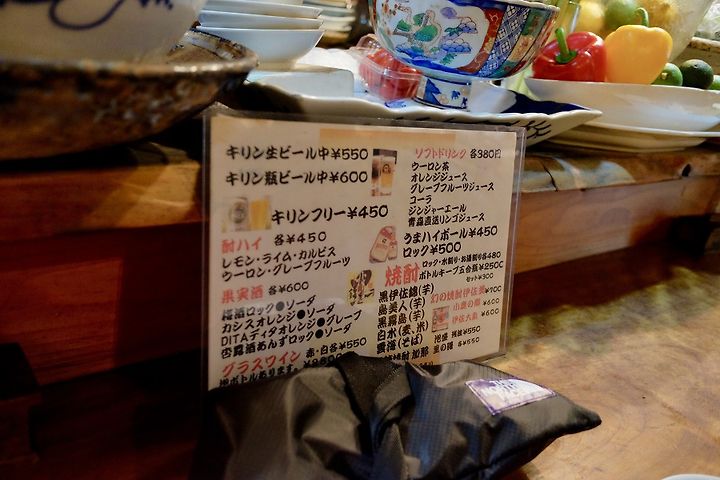 キリン生ビール中¥550
キリン瓶ビール中¥600
キリンフリー¥450
酎ハイ 各¥450
レモン・ライム・カルピス
ウーロン・グレープフルーツ
果実酒 各¥600
梅酒ロック●ソーダ
カシスオレンジ●ソーダ
DITAディタオレンジ●グレープ
杏露酒あんずロック●ソーダ
グラスワイン 赤・白各¥550
ボトルあります。
ソフトドリンク 各380円
ウーロン茶
オレンジジュース
グレープフルーツジュース
コーラ
ジンジャーエール
青森直送リンゴジュース
うまハイボール¥450
ロック¥500
焼酎 ロック・水割り・お湯割り各480
ボトルキープ五合瓶¥2500
セット¥300
黒伊佐錦(芋)
島美人(芋)
黒霧島(芋)
白水(麦、米)
雲海(そば)
幻の焼酎伊佐美¥700
小鹿の郷 ¥600
伊佐大泉 ¥600
泡盛 残波¥550
里の曙 各¥550